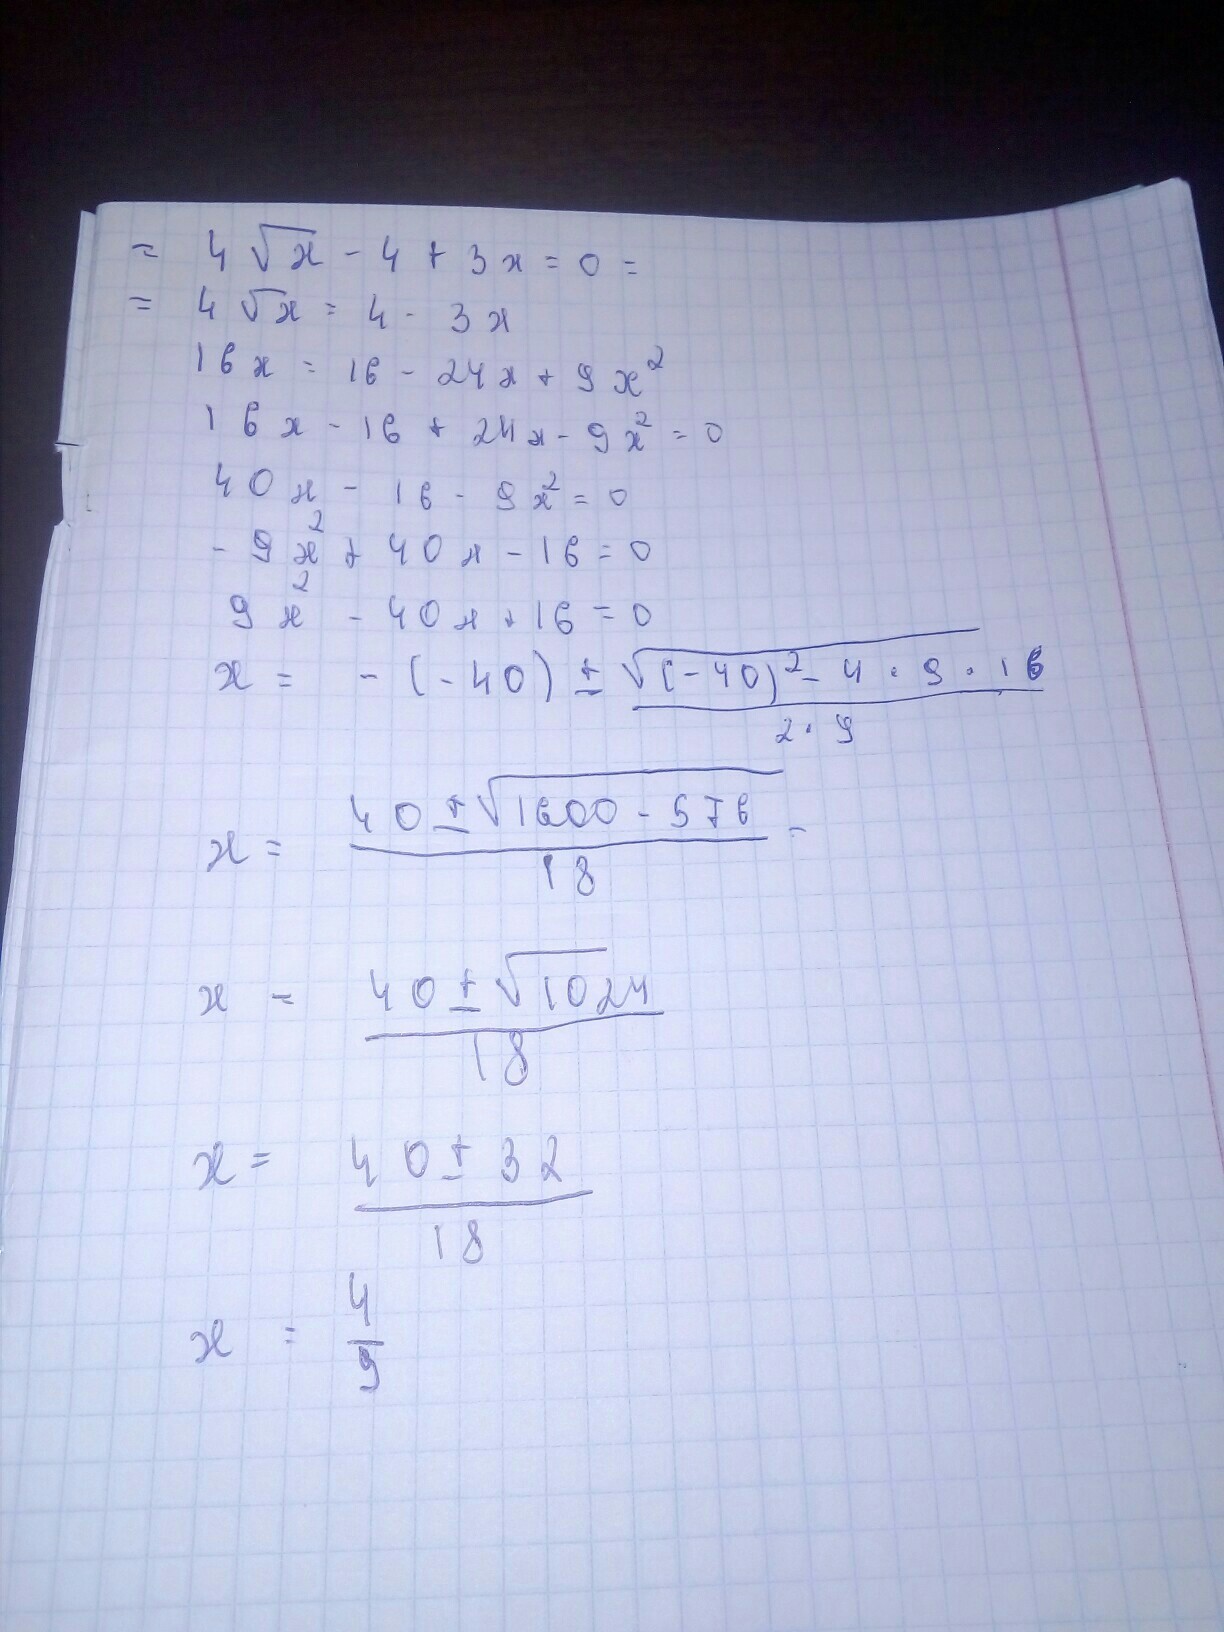 = 4√x - 4 + 3x = 0 =
= 4√x = 4 - 3x
16x = 16 - 24x + 9x²
16x - 16 + 24x - 9x² = 0
40x - 16 - 9x² = 0
- 9x² + 40x - 16 = 0
9x² - 40x + 16 = 0
x = - (-40) ± √(-40)² - 4 · 9 · 16
2 · 9
40 ± √1600 - 576
x = =
18
x = 40 ± √1024
18
x = 40 ± 32
18
4
x =
9